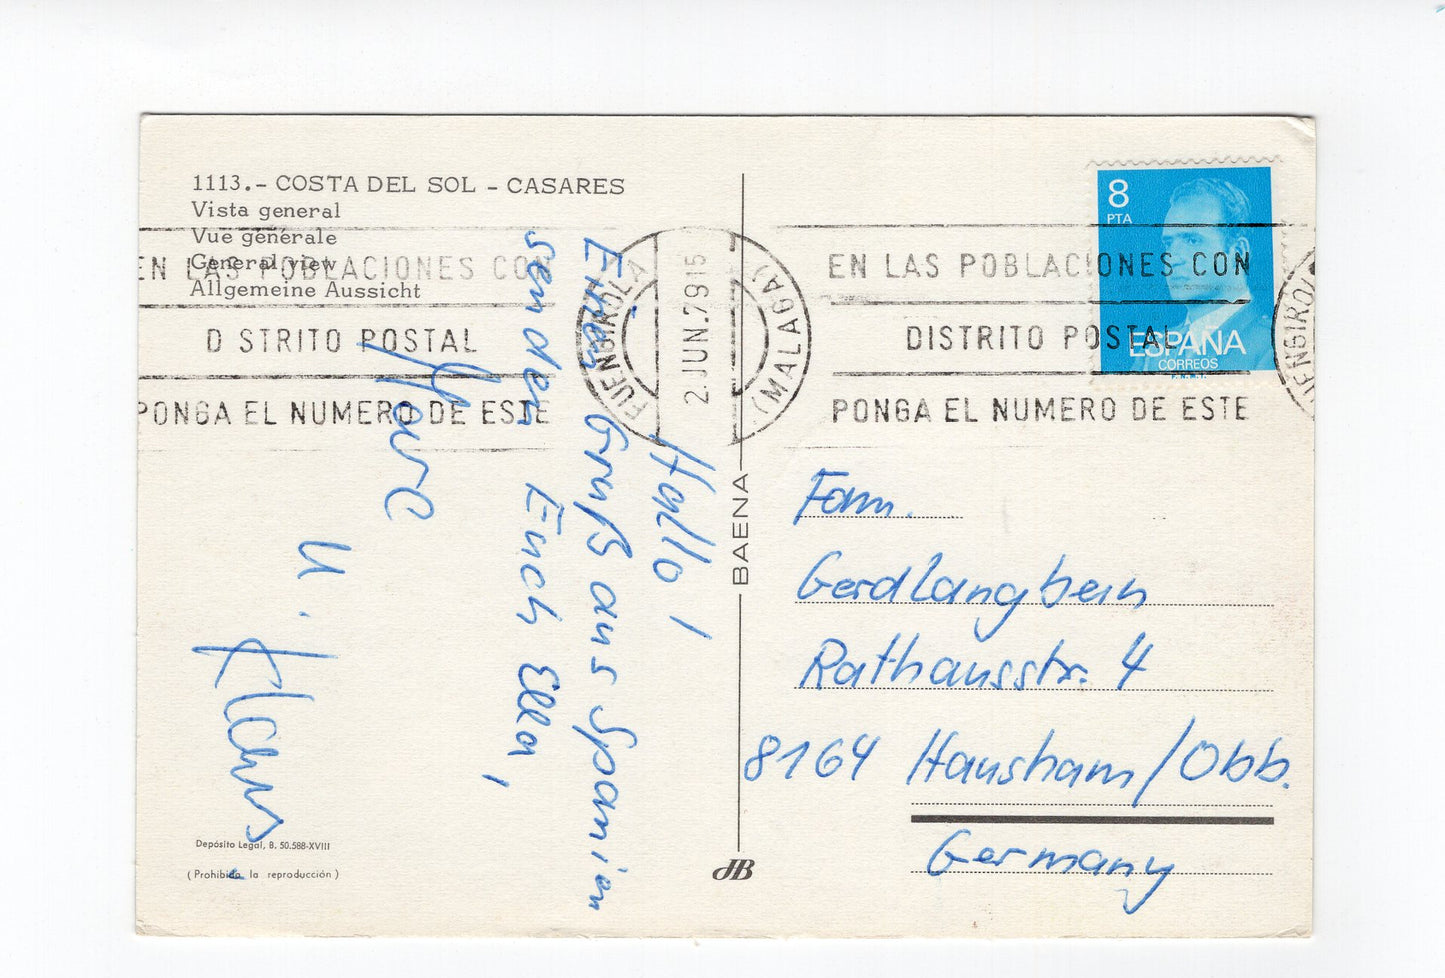 1113.- COSTA DEL SOL - CASARES
Vista general
Vue générale
General view
Allgemeine Aussicht
EN LAS POBLACIONES CON
D STRITO POSTAL
PONGA EL NUMERO DE ESTE
FUENGIROLA
2.JUN.79 15
(MALAGA)
EN LAS POBLACIONES CON
DISTRITO POSTAL
PONGA EL NUMERO DE ESTE
FUENGIROL
8
PTA
ESPAÑA
CORREOS
Hallo!
Einen Gruß aus Spanien
senden Euch Ella,
u. Klaus
BAENA
Fam.
Gerd Langbein
Rathausstr. 4
8164 Hausham/Obb.
Germany
Depósito Legal, B. 50.588-XVIII
(Prohibida la reproducción)
JB